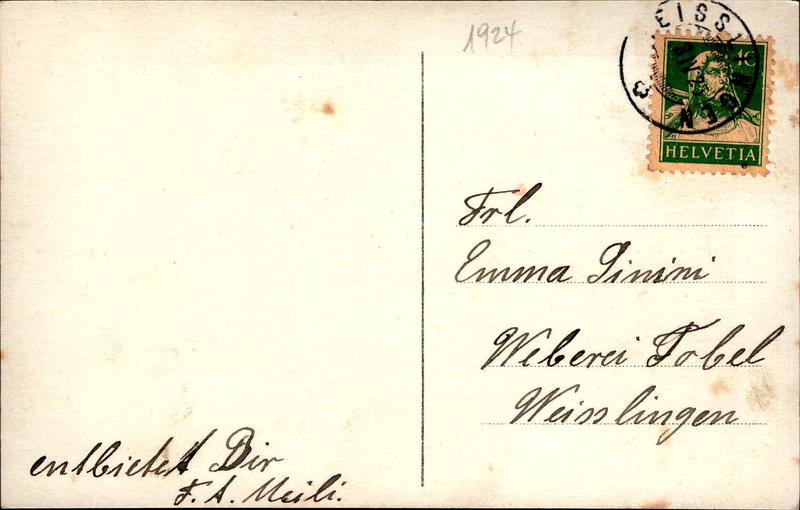 1924
EISSLINGEN
10
HELVETIA
Frl.
Emma Sinini
Weberei Tobel
Weisslingen
entbietet Dir
F. A. Meili.